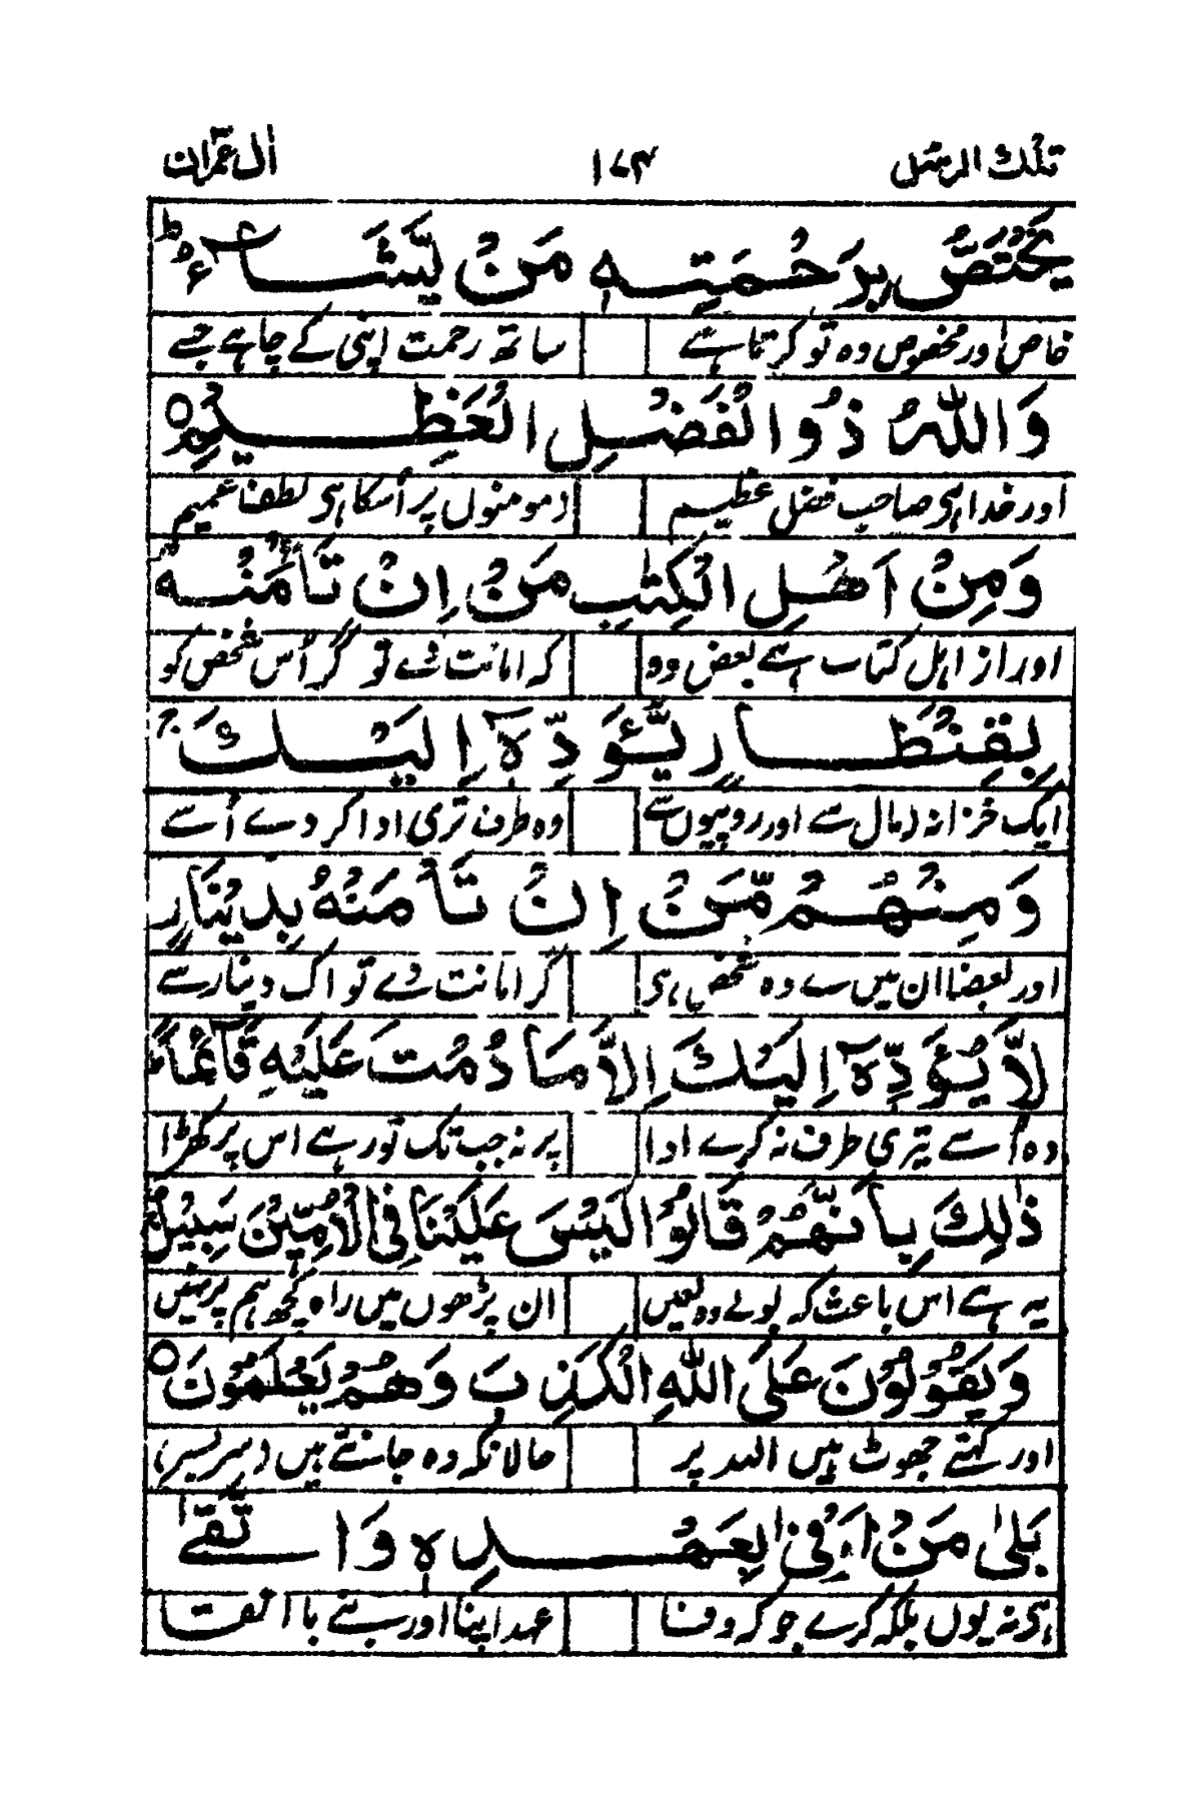 تلك الرسل ۱۷۴ اٰل عمرٰن
يَّخْتَصُّ بِرَحْمَتِهٖ مَنْ يَّشَآءُ ؕ
خاص اور مخصوص وہ تو کرتا ہے ساتھ رحمت اپنی کے چاہے جسے
وَاللّٰهُ ذُو الْفَضْلِ الْعَظِيْمِ ○
اور خدا ہی صاحب فضل عظیم (مومنوں پر اُسکا ہی لطف عمیم
وَمِنْ اَهْلِ الْكِتٰبِ مَنْ اِنْ تَاْمَنْهُ
اور از اہل کتاب ہے بعض وہ کہ امانت دے تو گر اُس شخص کو
بِقِنْطَارٍ يُّؤَدِّهٖٓ اِلَيْكَ ۚ
ایک خزانہ (مال سے اور روپیوں سے وہ طرف تری ادا کر دے اُسے
وَمِنْهُمْ مَّنْ اِنْ تَاْمَنْهُ بِدِيْنَارٍ
اور بعضا ان میں سے وہ شخص ہی گر امانت دے تو اک دینار سے
لَّا يُؤَدِّهٖٓ اِلَيْكَ اِلَّا مَا دُمْتَ عَلَيْهِ قَآئِمًا ؕ
وہ اُسے تیری طرف نہ کرے ادا پر نہ جب تک تو رہے اس پر کھڑا
ذٰلِكَ بِاَنَّهُمْ قَالُوْا لَيْسَ عَلَيْنَا فِى الْاُمِّيّٖنَ سَبِيْلٌ ۚ
یہ ہے اس باعث کہ بولے وہ لعیں ان پڑھوں میں راہ کچھ ہم پر نہیں
وَيَقُوْلُوْنَ عَلَى اللّٰهِ الْكَذِبَ وَهُمْ يَعْلَمُوْنَ ○
اور کہتے جھوٹ ہیں اللہ پر حالانکہ وہ جانتے ہیں (سر بسر)
بَلٰى مَنْ اَوْفٰى بِعَهْدِهٖ وَاتَّقٰى
ہی نہ یوں بلکہ کرے جو کہ وفا عہد اپنا اور بنے با اتقا